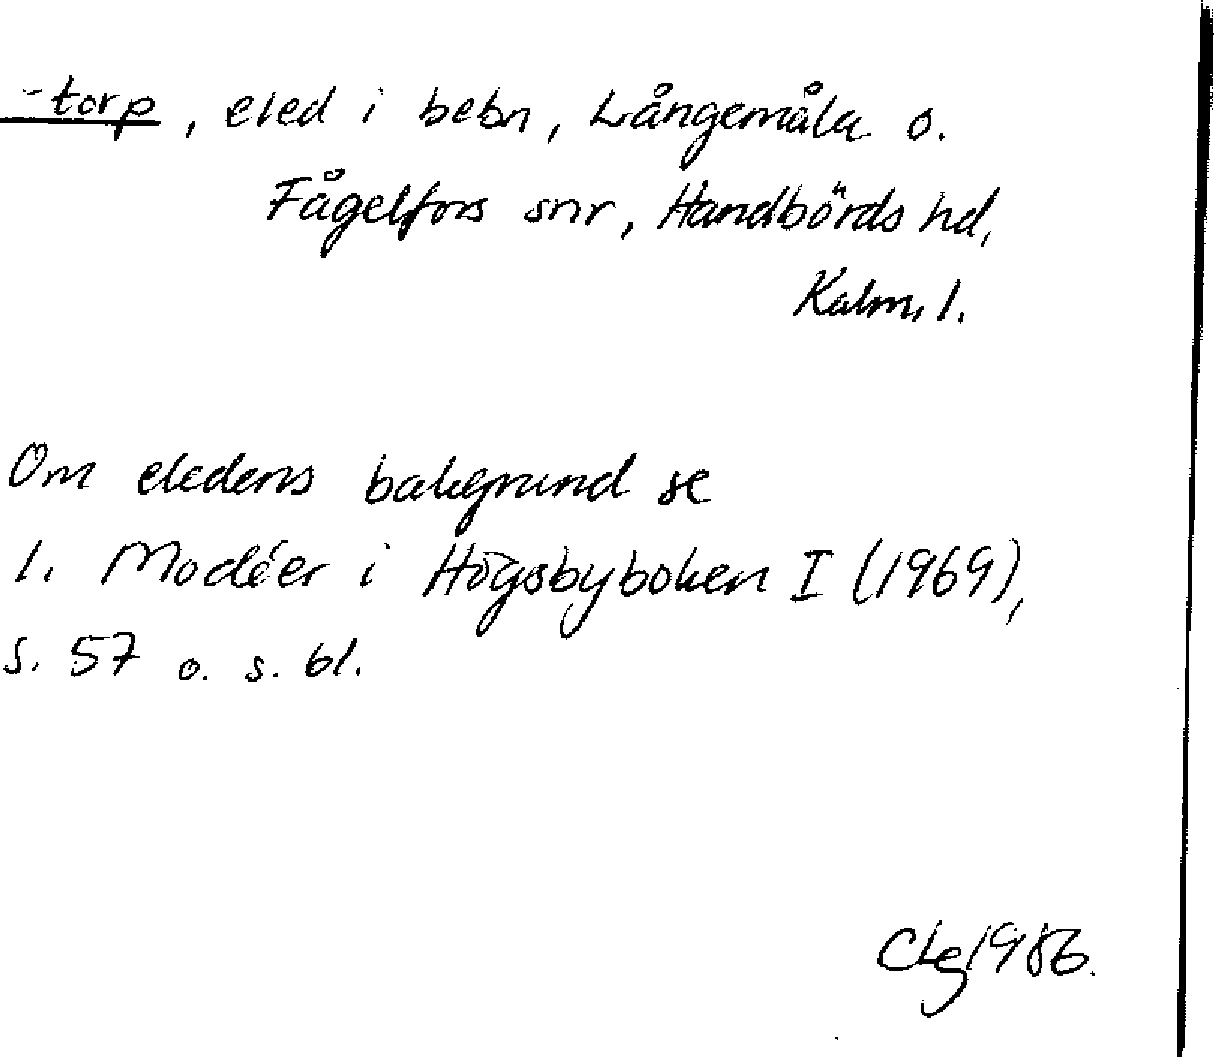 -torp, eled i bebn, Långemåla o.
Fågelfors snr, Handbörds hd,
Kalm. l.
Om eledens bakgrund se
I. Modéer i Högsbyboken I (1969),
s. 57 o. s. 61.
CLg 1986.